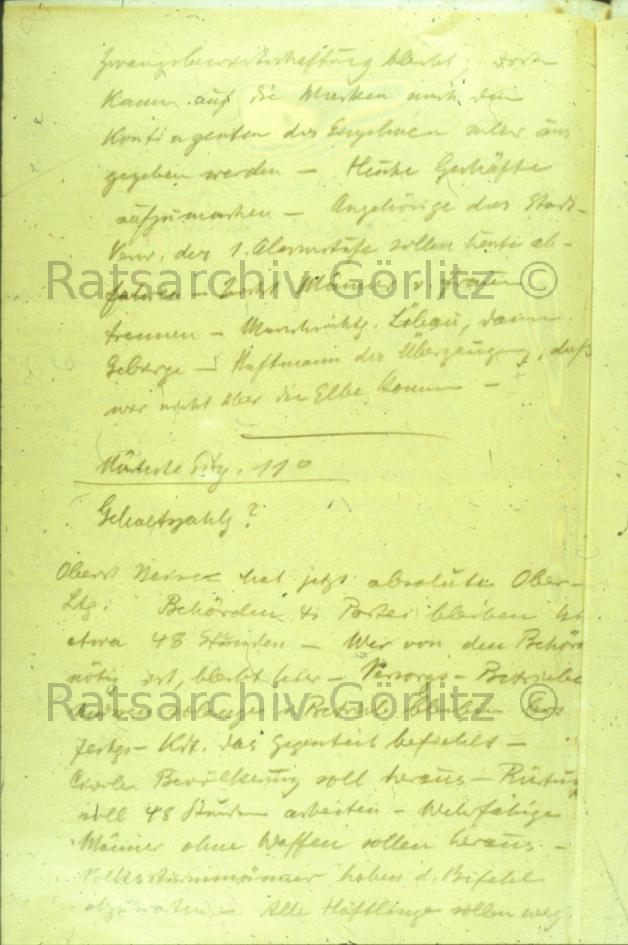 Zwangsbewirtschaftung bleibt, dort
kann auf die Marken nach den
Kontingenten des Einzelnen
gegeben werden — Heute Geschäfte
aufzumachen — Angehörige der Stadt-
Verw. der 1. Alarmstufe sollen heute ab-
fahren — Männer u. Frauen
Ratsarchiv Görlitz ©
trennen — Marschrichtg. Löbau, dann
Gebirge — der Überzeugung, daß
wir nicht über die Elbe kommen —
Nächste Sitzg. 11°
Gehaltszahlg?
Oberst hat jetzt absolute Ober-
Ltg. Behörden u. Partei bleiben
etwa 48 Stunden — Wer von den Behörd
nötig ist, bleibt hier — Versorgs-Betriebe
solange in Betrieb bleiben bis
Ratsarchiv Görlitz ©
das Gegenteil befiehlt —
Civile Bevölkerung soll heraus — Rüstung
soll 48 Stunden arbeiten — Wehrfähige
Männer ohne Waffen sollen heraus —
Volkssturmmänner haben d. Befehl
abzuwarten — Alle Häftlinge sollen weg